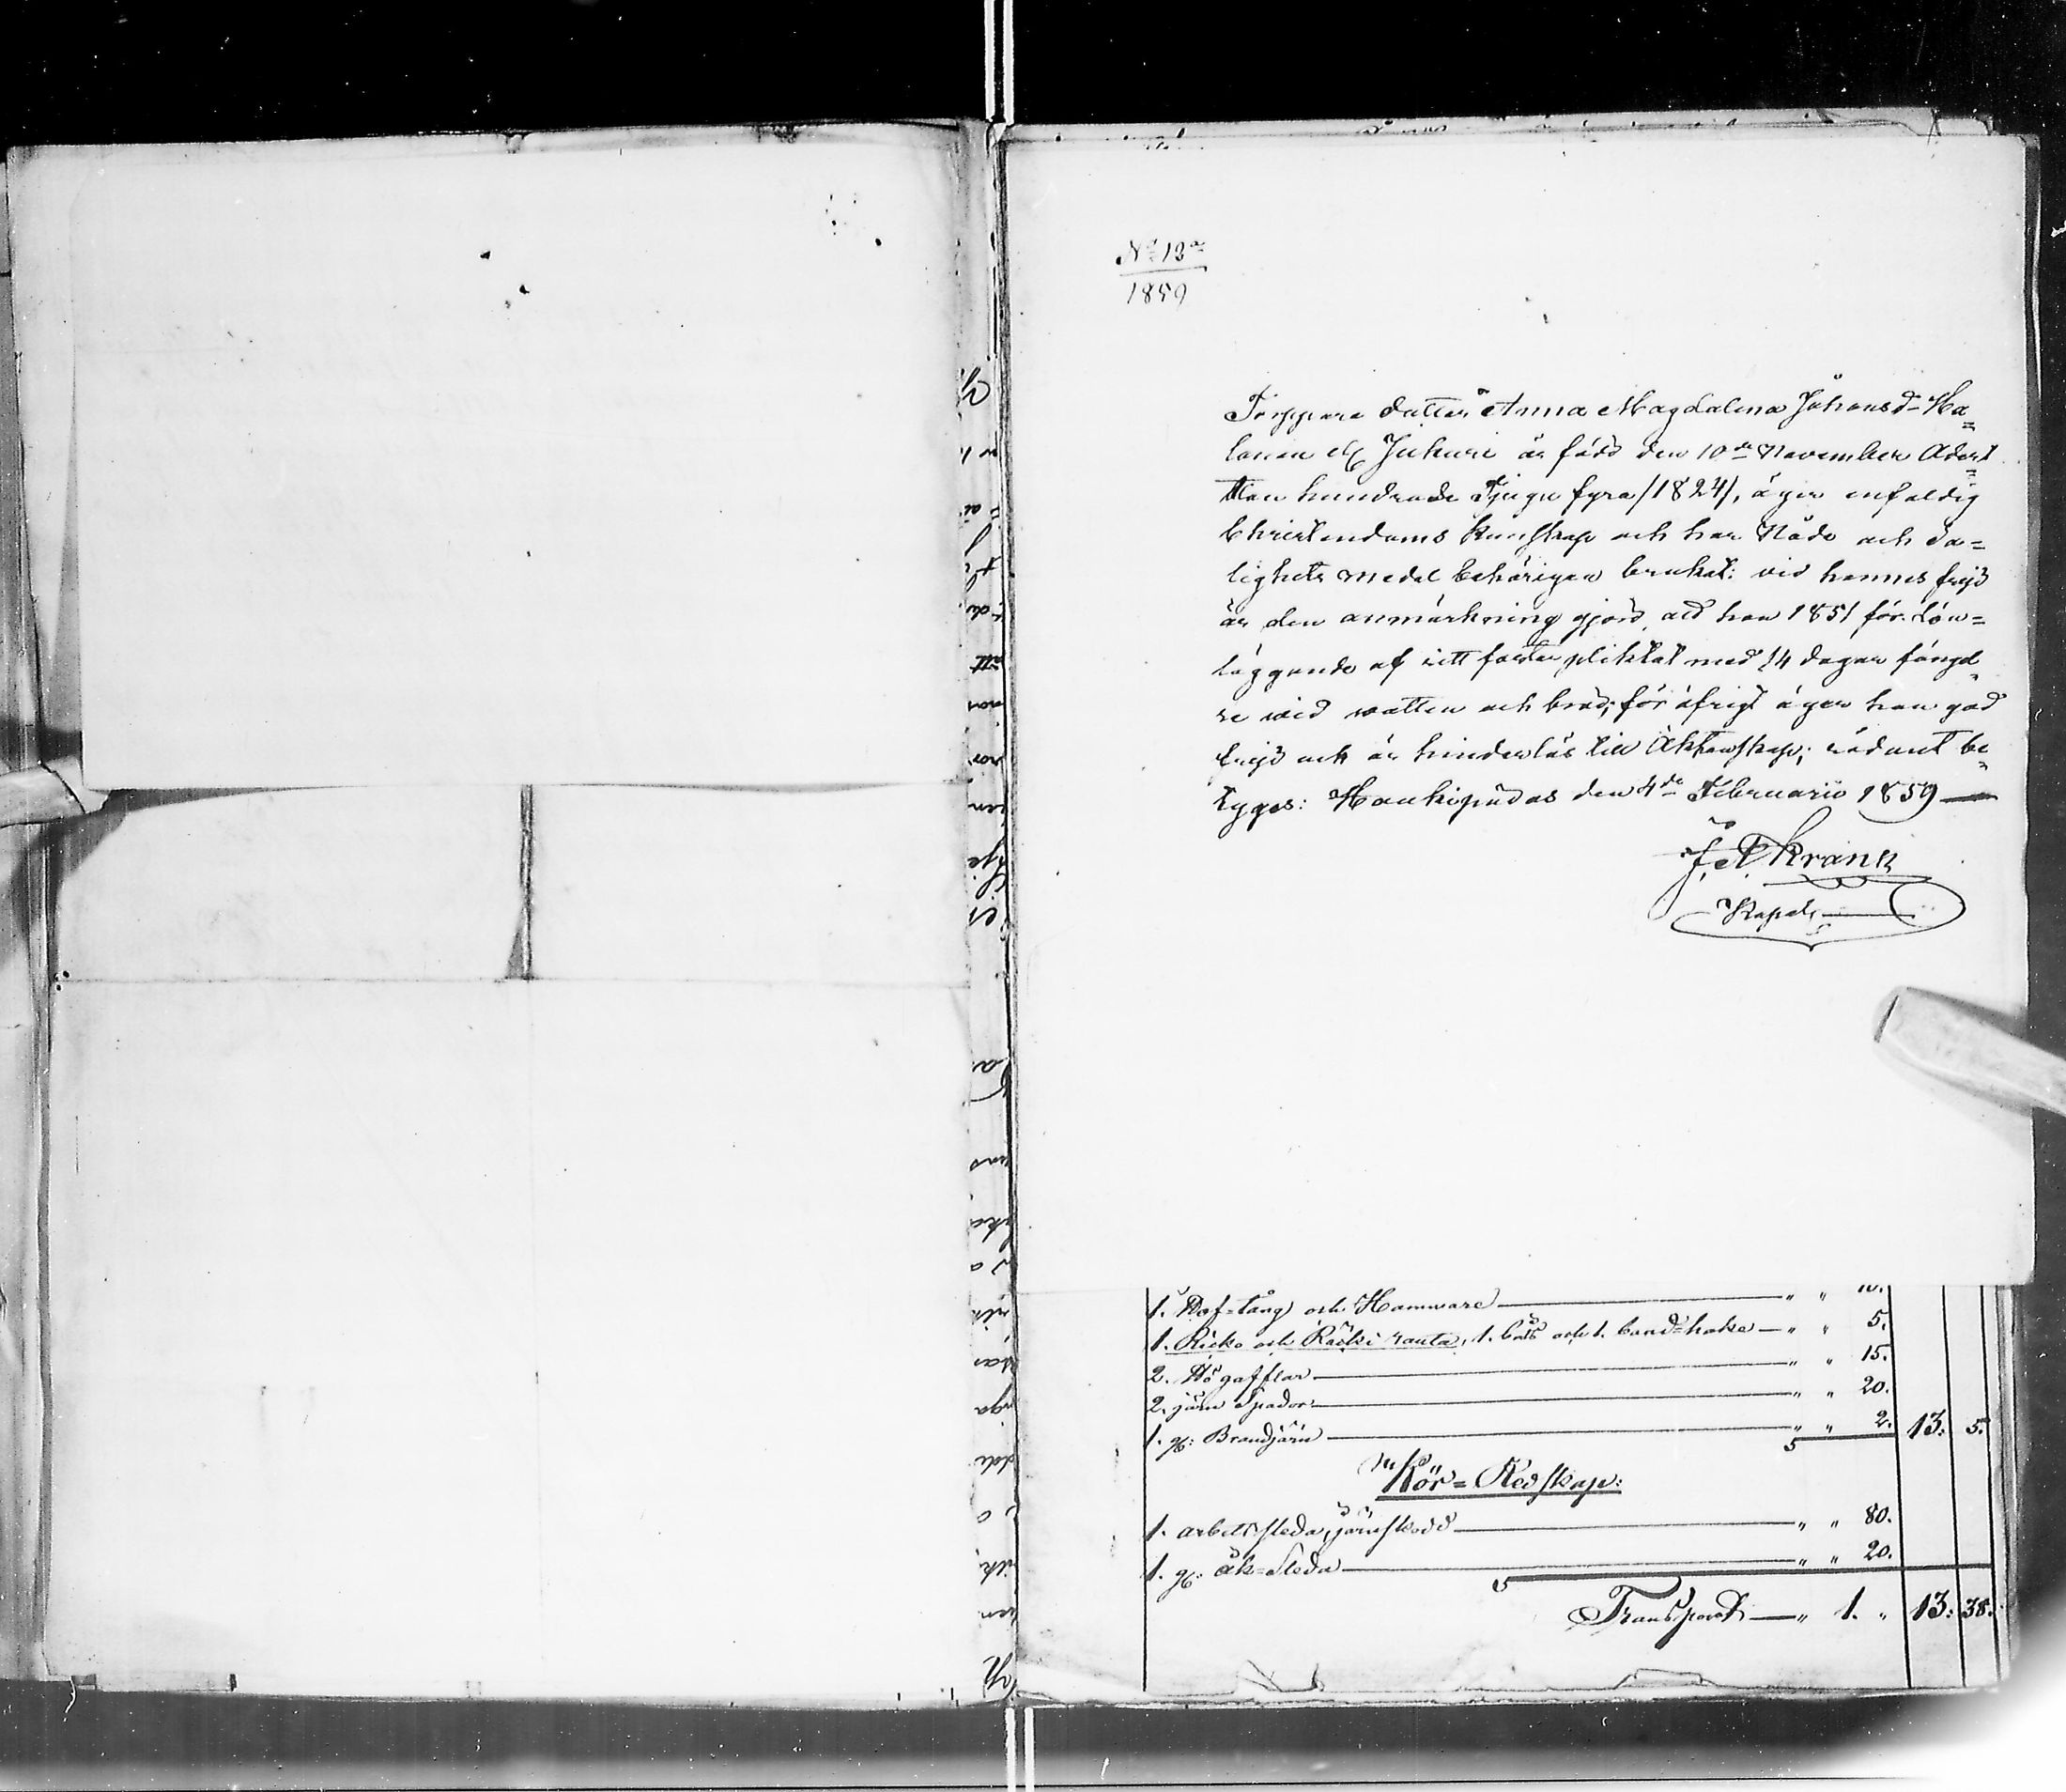 No 12
1859
Torppare dotter Anna Magdalena Johansd=Ha=
lonen el Jukuri är född den 10de November Adert=
ton hundrade Tjugu fyra /1824/, äger enfaldig
Christendoms kunskap och har Nåde och Sa=
lighets medel behörigen brukat: vid hennes frejd
är den anmärkning gjord, att hon 1851 för Lön=
läggande af sitt foster pliktat med 14 dagar fängel=
se wid watten och bröd; för öfrigt äger hon god
frejd och är hinderlös till Äktenskap; sådant be=
tygas: Haukipudas den 4de Februarii 1859
J. A. Krank
Kapel.
1. Hof=tång och Hammare — " " 10.
1. Kicko och Räcki rauta, 1. och 1. band=hake — " " 5.
2. Högafflar — " " 15.
2. järn Spador — " " 20.
1. gl: Brandjärn — " " 2. 13. 5.
Kör=Redskap:
1. arbets sleda, järnskodd — " " 80.
1. gl: åk=Sleda — " " 20.
Transport — " 1. " 13. 38.